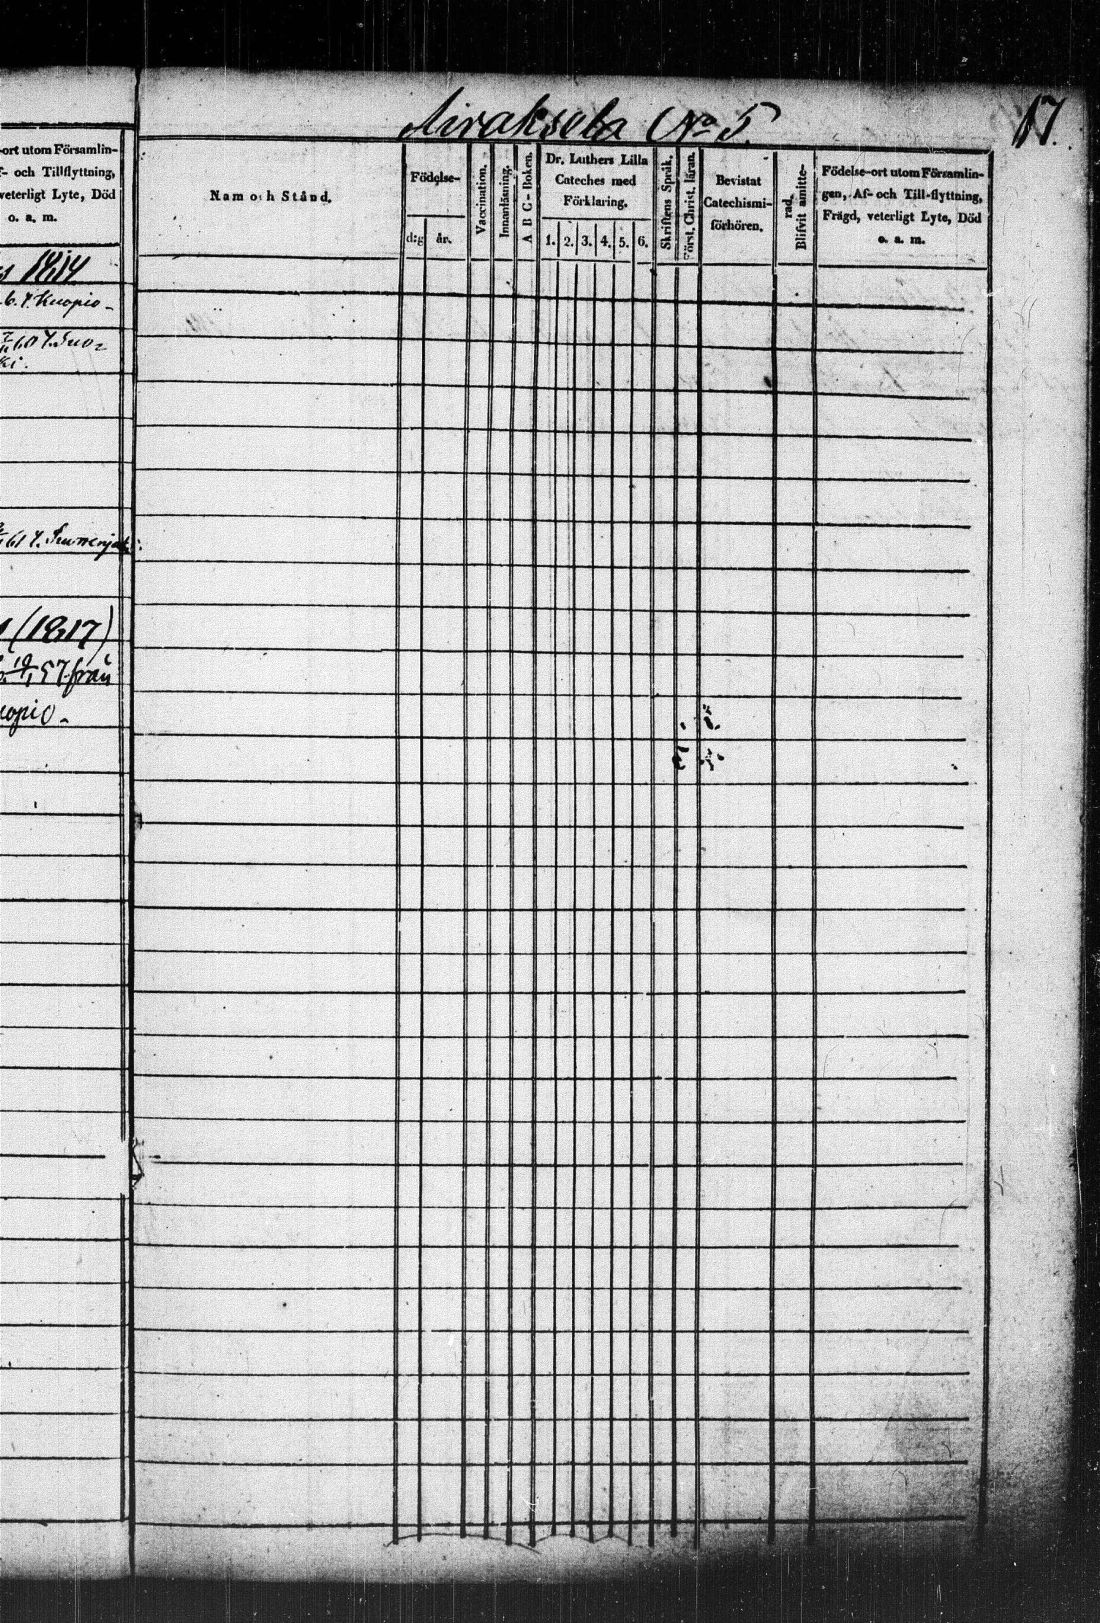 Airaksela No 5.
17.
-ort utom Församlin-
f- och Tillflyttning,
veterligt Lyte, Död
o. a. m.
1814
6. f. Kuopio-
60 f.
ki.
61 f.
(1817)
57 från
uopio-
Namn och Stånd.
Födelse-
d:g år.
Vaccination.
Innanläsning.
A B C-Boken.
Dr. Luthers Lilla
Cateches med
Förklaring.
1. 2. 3. 4. 5. 6.
Skriftens Språk.
Först. Christ. läran.
Bevistat
Catechismi-
förhören.
Blifvit amitte-
rad.
Födelse-ort utom Församlin-
gen, Af- och Till-flyttning,
Frägd, veterligt Lyte, Död
o. a. m.